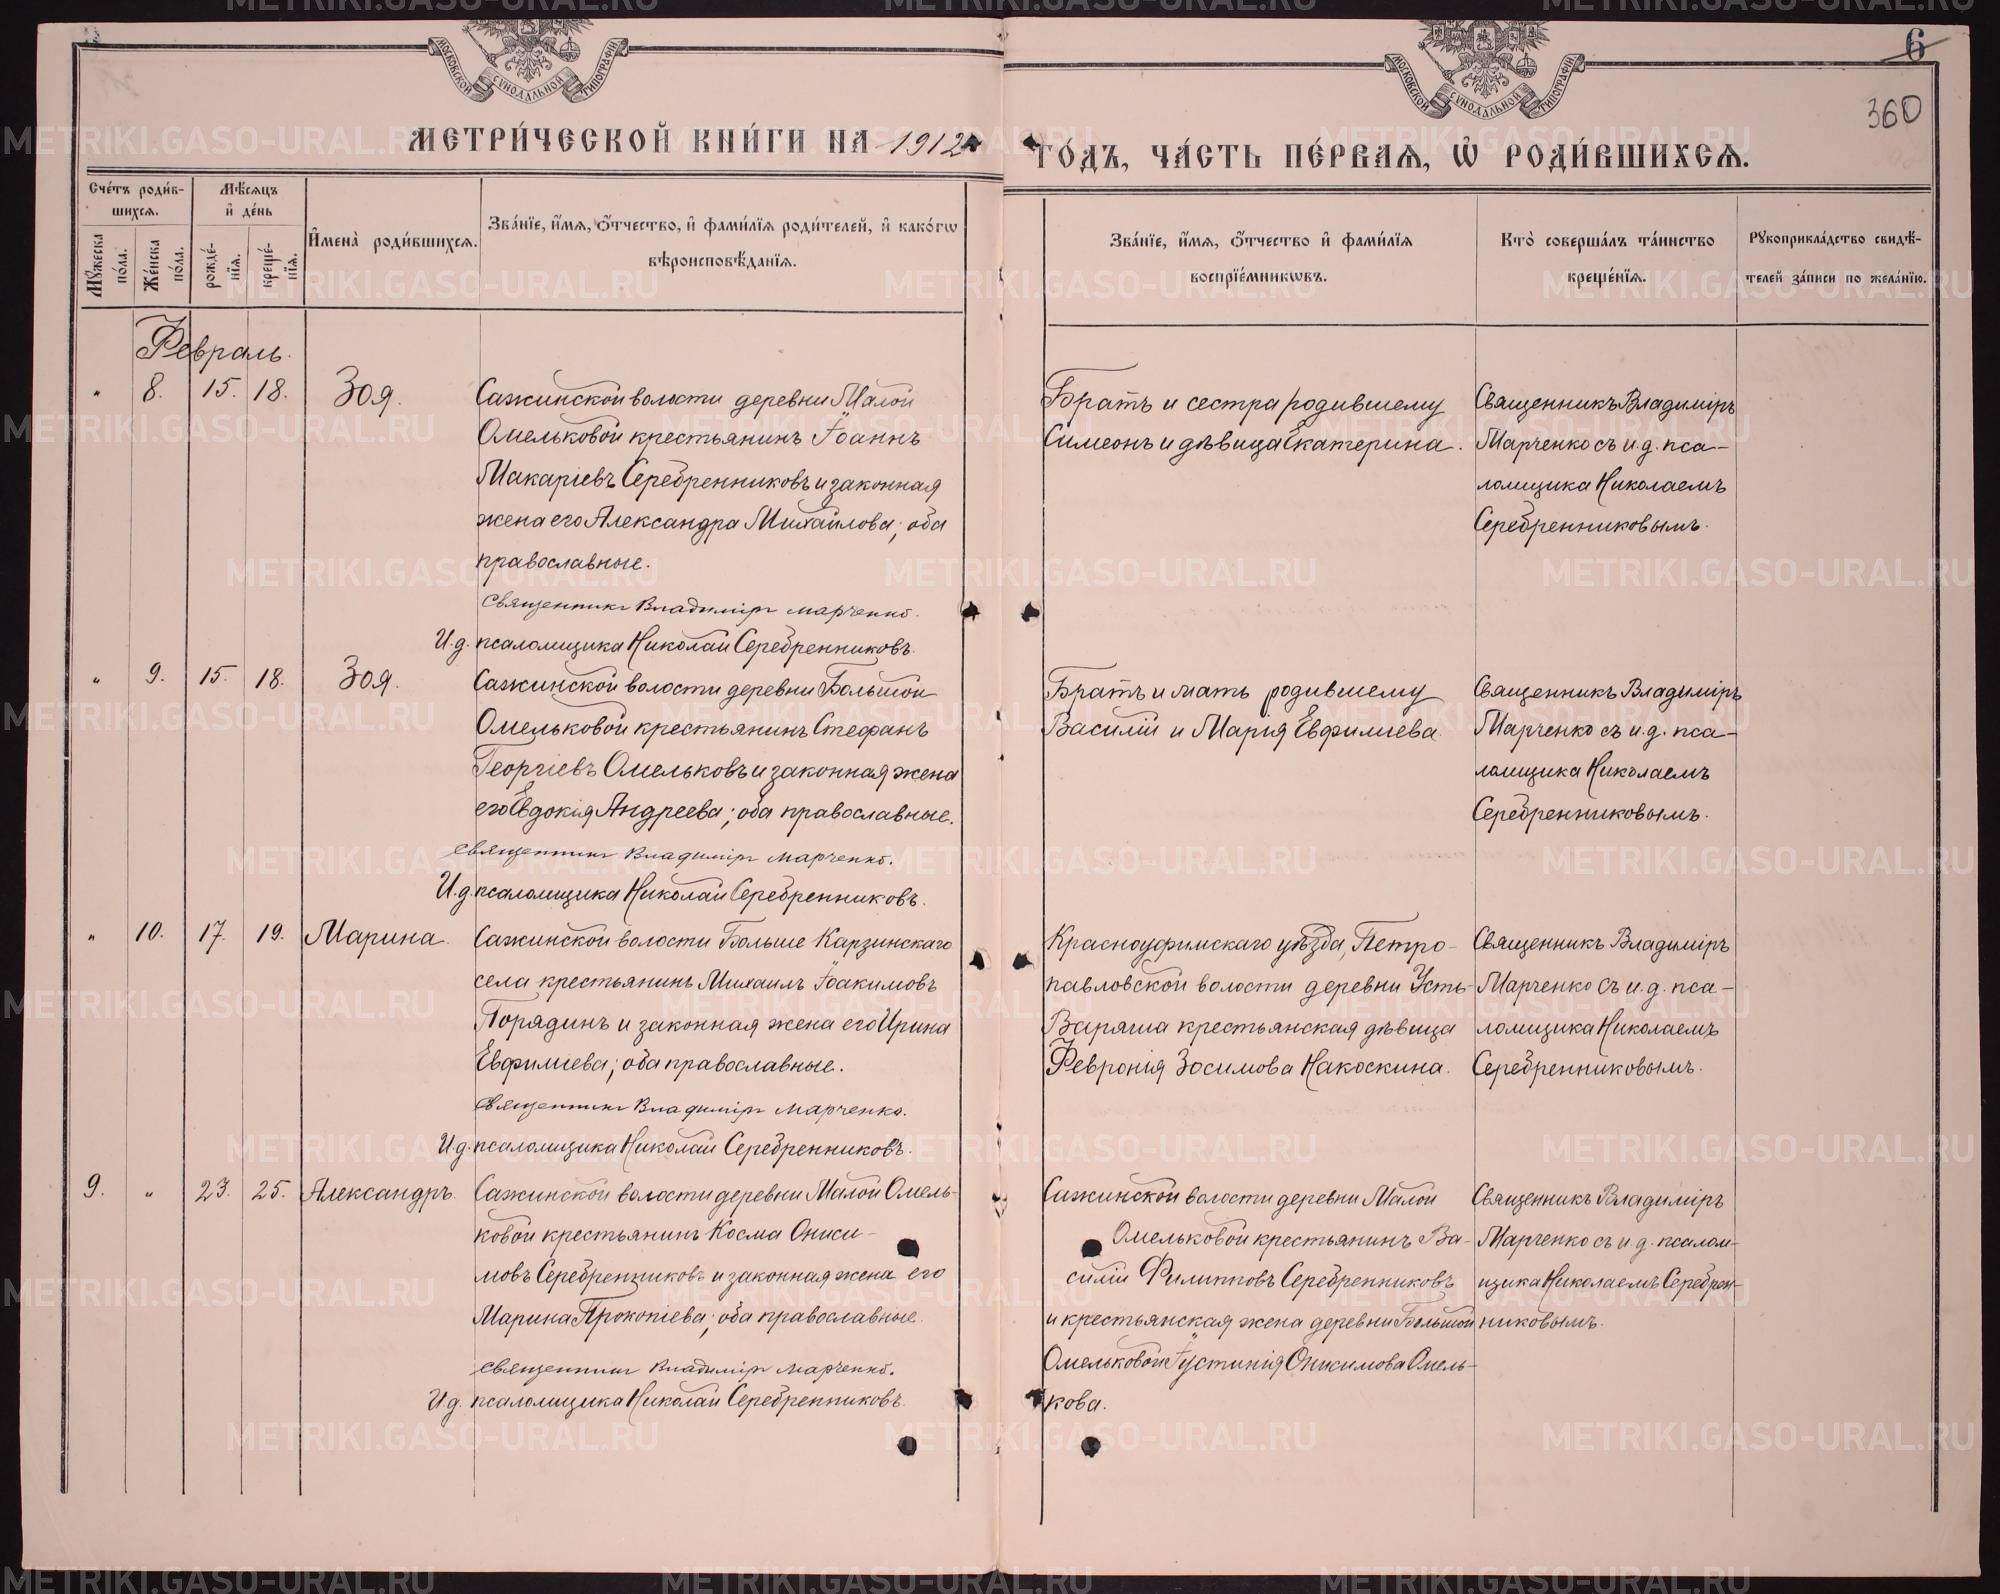 МОСКОВСКОЙ СѴНОДАЛЬНОЙ ТИПОГРАФІИ
МОСКОВСКОЙ СѴНОДАЛЬНОЙ ТИПОГРАФІИ
6
360
МЕТРИ́ЧЕСКОЙ КНИ́ГИ НА 1912
ГО́ДЪ, ЧА́СТЬ ПЕ́РВАѦ, Ѡ҆ РОДИ́ВШИХСѦ.
Сче́тъ роди́в-
шихсѧ.
Мꙋжеска по́ла.
Же́нска по́ла.
Мѣ́сѧцъ
и҆ де́нь
рожде́-
нїѧ.
креще́-
нїѧ.
И҆мена̀ роди́вшихсѧ.
Зва́нїе, и҆́мѧ, ѻ҆́тчество, и҆ фами́лїѧ роди́телей, и҆ како́гѡ
вѣроисповѣ́данїѧ.
Зва́нїе, и҆́мѧ, ѻ҆́тчество и҆ фами́лїѧ
воспрїе́мникѡвъ.
Кто̀ соверша́лъ та́инство
креще́нїѧ.
Рꙋкоприкла́дство свидѣ́-
телей за́писи по жела́нїю.
Февраль.
" 8. 15. 18. Зоя.
Сажинской волости деревни Малой
Омельковой крестьянинъ Іоаннъ
Макаріевъ Серебренниковъ и законная
жена его Александра Михайлова; оба
православные.
Священникъ Владиміръ Марченко.
И.д. псаломщика Николай Серебренниковъ.
Братъ и сестра родившему
Симеонъ и дѣвица Екатерина.
Священникъ Владиміръ
Марченко съ и.д. пса-
ломщика Николаемъ
Серебренниковымъ.
" 9. 15. 18. Зоя.
Сажинской волости деревни Большой
Омельковой крестьянинъ Стефанъ
Георгіевъ Омельковъ и законная жена
его Евдокія Андреева; оба православные.
Священникъ Владиміръ Марченко.
И.д. псаломщика Николай Серебренниковъ.
Братъ и мать родившему
Василій и Марія Евфиміева
Священникъ Владиміръ
Марченко съ и.д. пса-
ломщика Николаемъ
Серебренниковымъ.
" 10. 17. 19. Марина.
Сажинской волости Больше Карзинскаго
села крестьянинъ Михаилъ Іоакимовъ
Порядинъ и законная жена его Ирина
Евфиміева; оба православные.
Священникъ Владиміръ Марченко.
И.д. псаломщика Николай Серебренниковъ.
Красноуфимскаго уѣзда, Петро-
павловской волости деревни Усть-
Варяша крестьянская дѣвица
Февронія Зосимова Накоскина.
Священникъ Владиміръ
Марченко съ и.д. пса-
ломщика Николаемъ
Серебренниковымъ.
9. " 23. 25. Александръ.
Сажинской волости деревни Малой Омель-
ковой крестьянинъ Косма Ониси-
мовъ Серебренниковъ и законная жена его
Марина Прокопіева; оба православные.
Священникъ Владиміръ Марченко.
И.д. псаломщика Николай Серебренниковъ.
Сажинской волости деревни Малой
Омельковой крестьянинъ Ва-
силій Филипповъ Серебренниковъ
и крестьянская жена деревни Большой
Омельковой Іустинія Онисимова Омель-
кова.
Священникъ Владиміръ
Марченко съ и.д. псалом-
щика Николаемъ Серебрен-
никовымъ.
METRIKI.GASO-URAL.RU